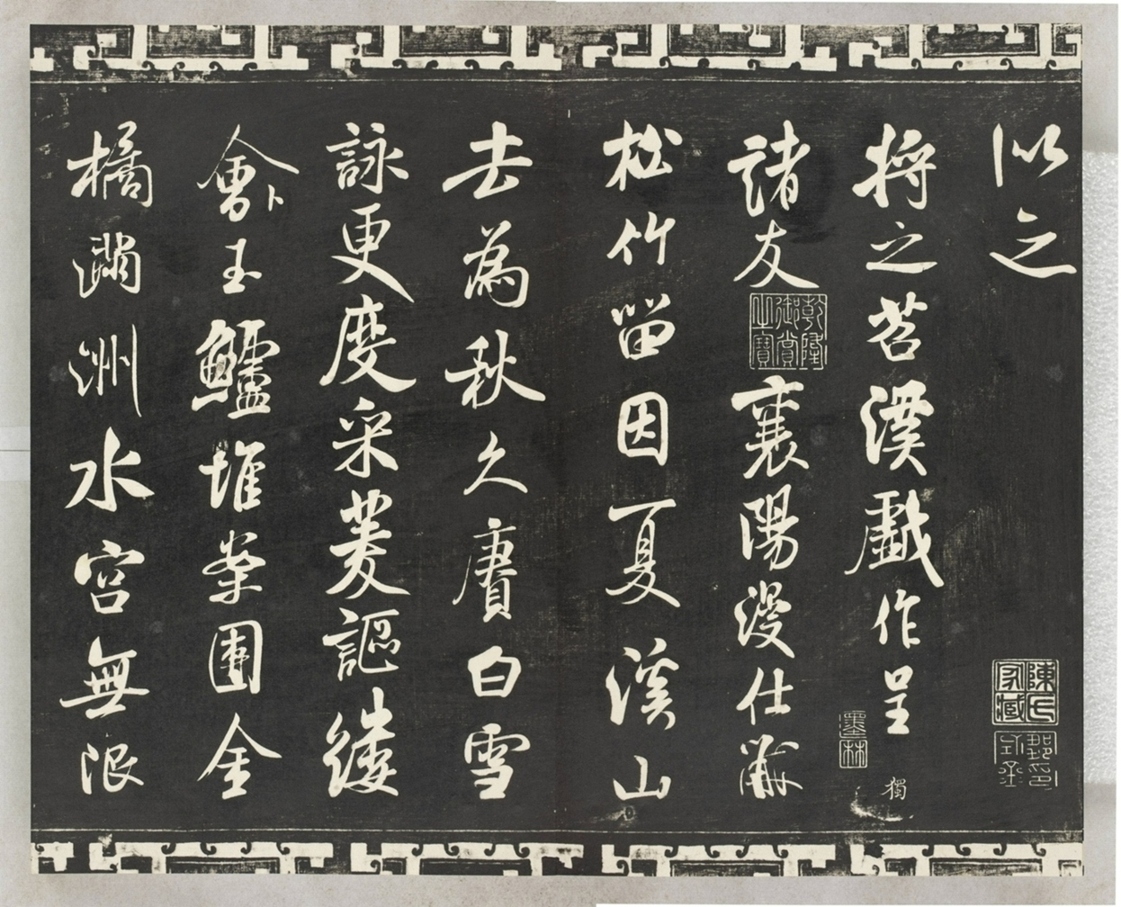 以之
陳氏家藏
将之苕溪戲作呈
獨
墨林
諸友
乾隆御賞之寶
襄陽漫仕黻
松竹留因夏溪山
去為秋久賡白雪
詠更度采菱謳縷
會玉鱸堆案團金
橘滿洲水宮無限